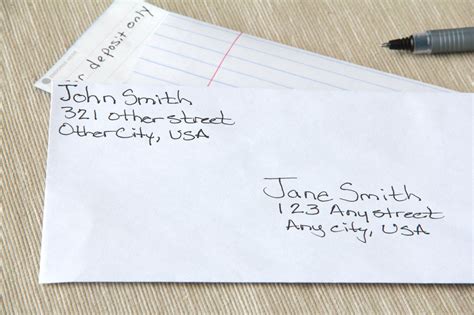 deposit only
John Smith
321 Other street
Other City, USA
Jane Smith
123 Any street
Any city, USA